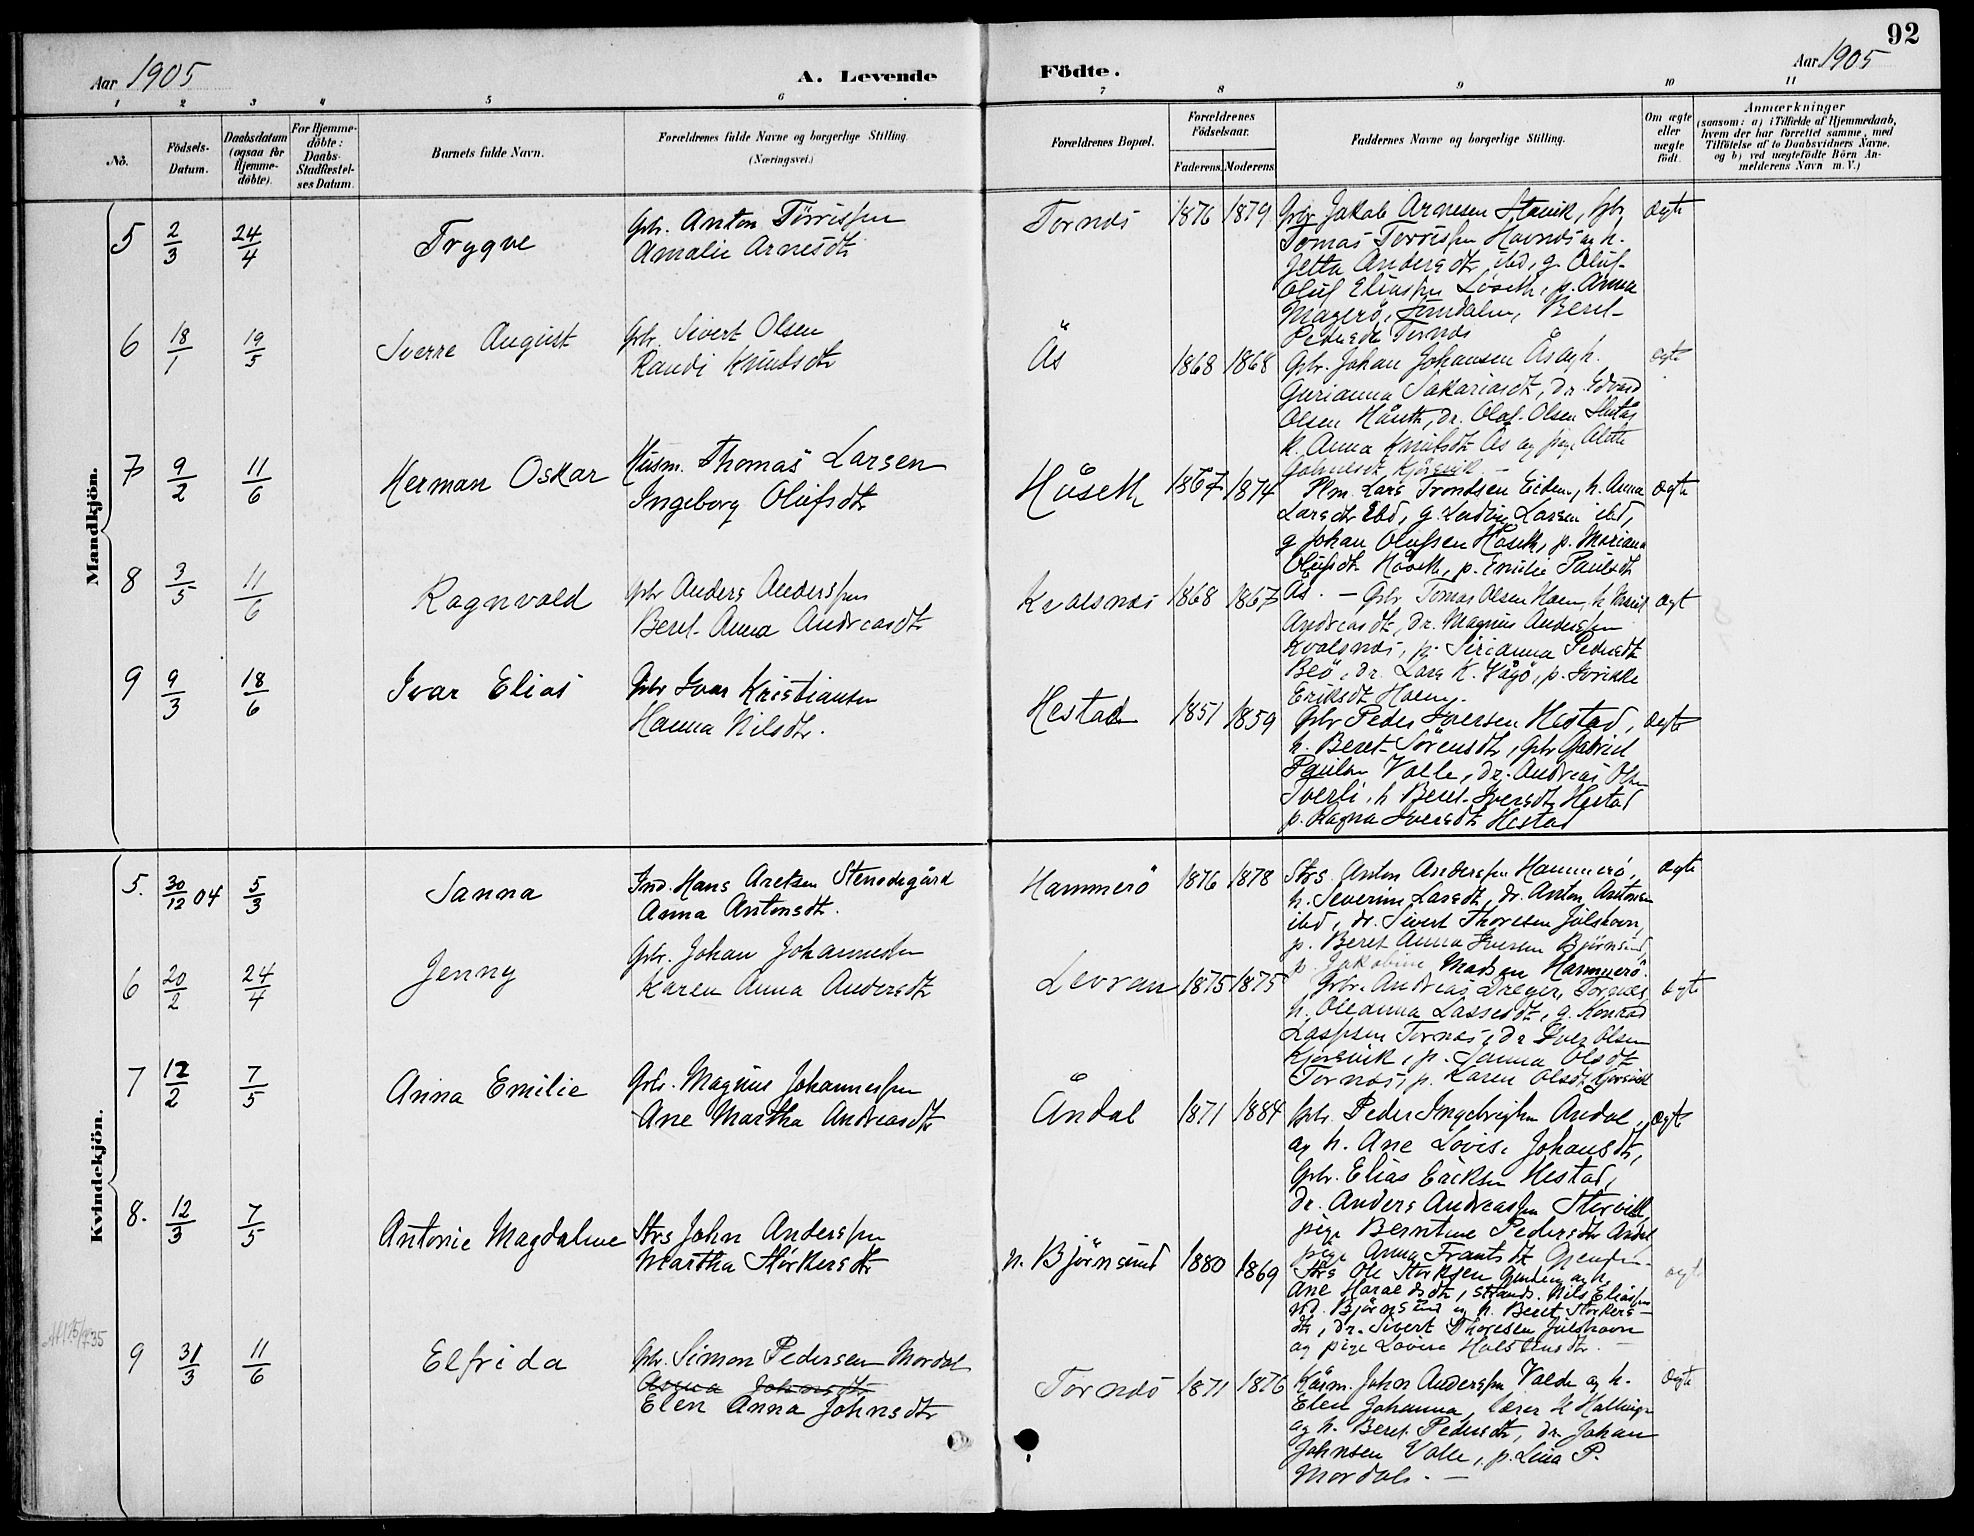 92
Aar 1905
A. Levende
Födte.
Aar 1905
1 2 3 4 5 6 7 8 9 10 11
No.
Födsels-Datum.
Daabsdatum (ogsaa for Hjemme-döbte).
For Hjemme-döbte: Daabs-Stadfæstel-ses Datum.
Barnets fulde Navn.
Forældrenes fulde Navne og borgerlige Stilling.
(Næringsvei.)
Forældrenes Bopæl.
Forældrenes Födselsaar.
Faderens. Moderens.
Faddernes Navne og borgerlige Stilling.
Om ægte eller uægte födt.
Anmærkninger
(saasom: a) i Tilfælde af Hjemmedaab, hvem der har forrettet samme, med Tilföielse af to Daabsvidners Navne, og b) ved uægtefödte Börn An-melderens Navn m. V.)
Mandkjön.
5 2/3 24/4 Trygve
Gbr. Anton Törrissen
Amalie Arnesdt
Tornes 1876 1879
Gbr Jakob Arnesen Stavik, Gbr
Tomas Torrissen Havnes og h.
Jetta Andersdt ibd, g. Oluf
Oluf Eliassen Löseth, p. Anna
Magerö, Sundalen, Beret
Pedersdt Tornes
ægte
6 18/1 19/5 Sverre August
Gbr. Sivert Olsen
Randi Knutsdt
Ås 1868 1868
Gbr. Johan Johansen Ås og h.
Gurianna Sakariasdt, Dr. Edvard
Olsen Håseth, dr. Olaf Olsen
h. Anna Knutsdt Ås og pige Alette
ægte
7 9/2 11/6 Herman Oskar
Husm. Thomas Larsen
Ingeborg Olufsdt
Håseth 1867 1874
Plm. Lars Trondsen Eiden, h. Anna
Larsdt ibd, g. Ludvig Larsen ibd,
g Johan Olufsen Håseth, p. Mariana
Olufsdt Håseth, p. Emilie Paulsdt
Ås. –
ægte
8 3/5 11/6 Ragnvald
Gbr Anders Anderssen
Beret Anna Andreasdt
Kvalsnes 1868 1867
Gbr. Tomas Olsen Haen, h
Andreasdt, dr. Magnus Anderssen
Kvalsnes, p. Sirianna Pedersdt
Beö, dr. Lars K. Vågö, p.
Eriksdt Haen.
ægt
9 9/3 18/6 Ivar Elias
Gbr Ivar Kristiansen
Hanna Nilsdt.
Hestad 1851 1859
Gbr Peder Iversen Hestad,
h. Beret Sörensdt, Gbr Gabriel
Paulsen Valle, dr. Andreas Olsen
Tverli, h Beret Iversdt Hestad
p. Ragna Iversdt Hestad
ægte
Kvindekjön.
5. 30/12 04 5/3 Sanna
Ind. Hans Aretsen Stenödegård
Anna Antonsdt.
Hammerö 1876 1878
Strs. Anton Anderssen Hammerö,
h. Severine Larsdt, dr. Anton Antonsen
ibd, dr. Sivert Thoresen Julshavn,
p. Beret Anna Iversen Björnsund,
p. Jakobine Madsen Hammerö.
ægte
6 20/2 24/4 Jenny
Gbr. Johan Johannessen
Karen Anna Andersdt
Levran 1875 1875
Gbr. Andreas Dreyer, Tornes,
h. Oleanna Lassesdt, g. Konrad
Lassesen Tornes, dr Iver Olsen
Kjörsvik, p. Sanna Olsdt
Tornes, p. Karen Olsdt Kjörsvik
ægte
7 12/2 7/5 Anna Emilie
Gbr. Magnus Johannessen
Ane Martha Andreasdt
Åndal 1871 1884
Gbr. Peder Ingebrigtsen Åndal,
og h. Ane Lovise Johansdt,
Gbr. Elias Eriksen Hestad,
dr. Anders Andreassen Storvik,
pige Berntine Pedersdt Åndal
pige Anna Frantsdt
ægte
8. 12/3 7/5 Antonie Magdalene
Strs John Anderssen
Martha Störkersdt
n. Björnsund 1880 1869
Strs Ole Storksen og h.
Ane Haraldsdt, strands. Nils Eliassen
nd. Björnsund og h. Beret Störkers-
dt, dr. Sivert Thoresen Julshavn
og pige Lovise Halstensdt. –
ægte
9 31/3 11/6 Elfrida
Gbr. Simon Pedersen Mordal
Elen Anna Johnsdt
Tornes 1871 1876
Kårm. John Anderssen Valde og h.
Elen Johanna, lærer H Hallinge
og h. Beret Pedersdt, dr Johan
Johnsen Valle, p. Lina P.
Mordals. –
ægte